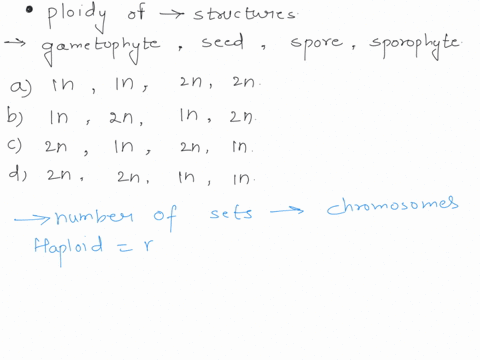 • ploidy of → structures
→ gametophyte, seed, spore, sporophyte
a) 1n, 1n, 2n, 2n.
b) 1n, 2n, 1n, 2n.
c) 2n, 1n, 2n, 1n.
d) 2n, 2n, 1n, 1n.
→ number of sets → chromosomes
Haploid = r